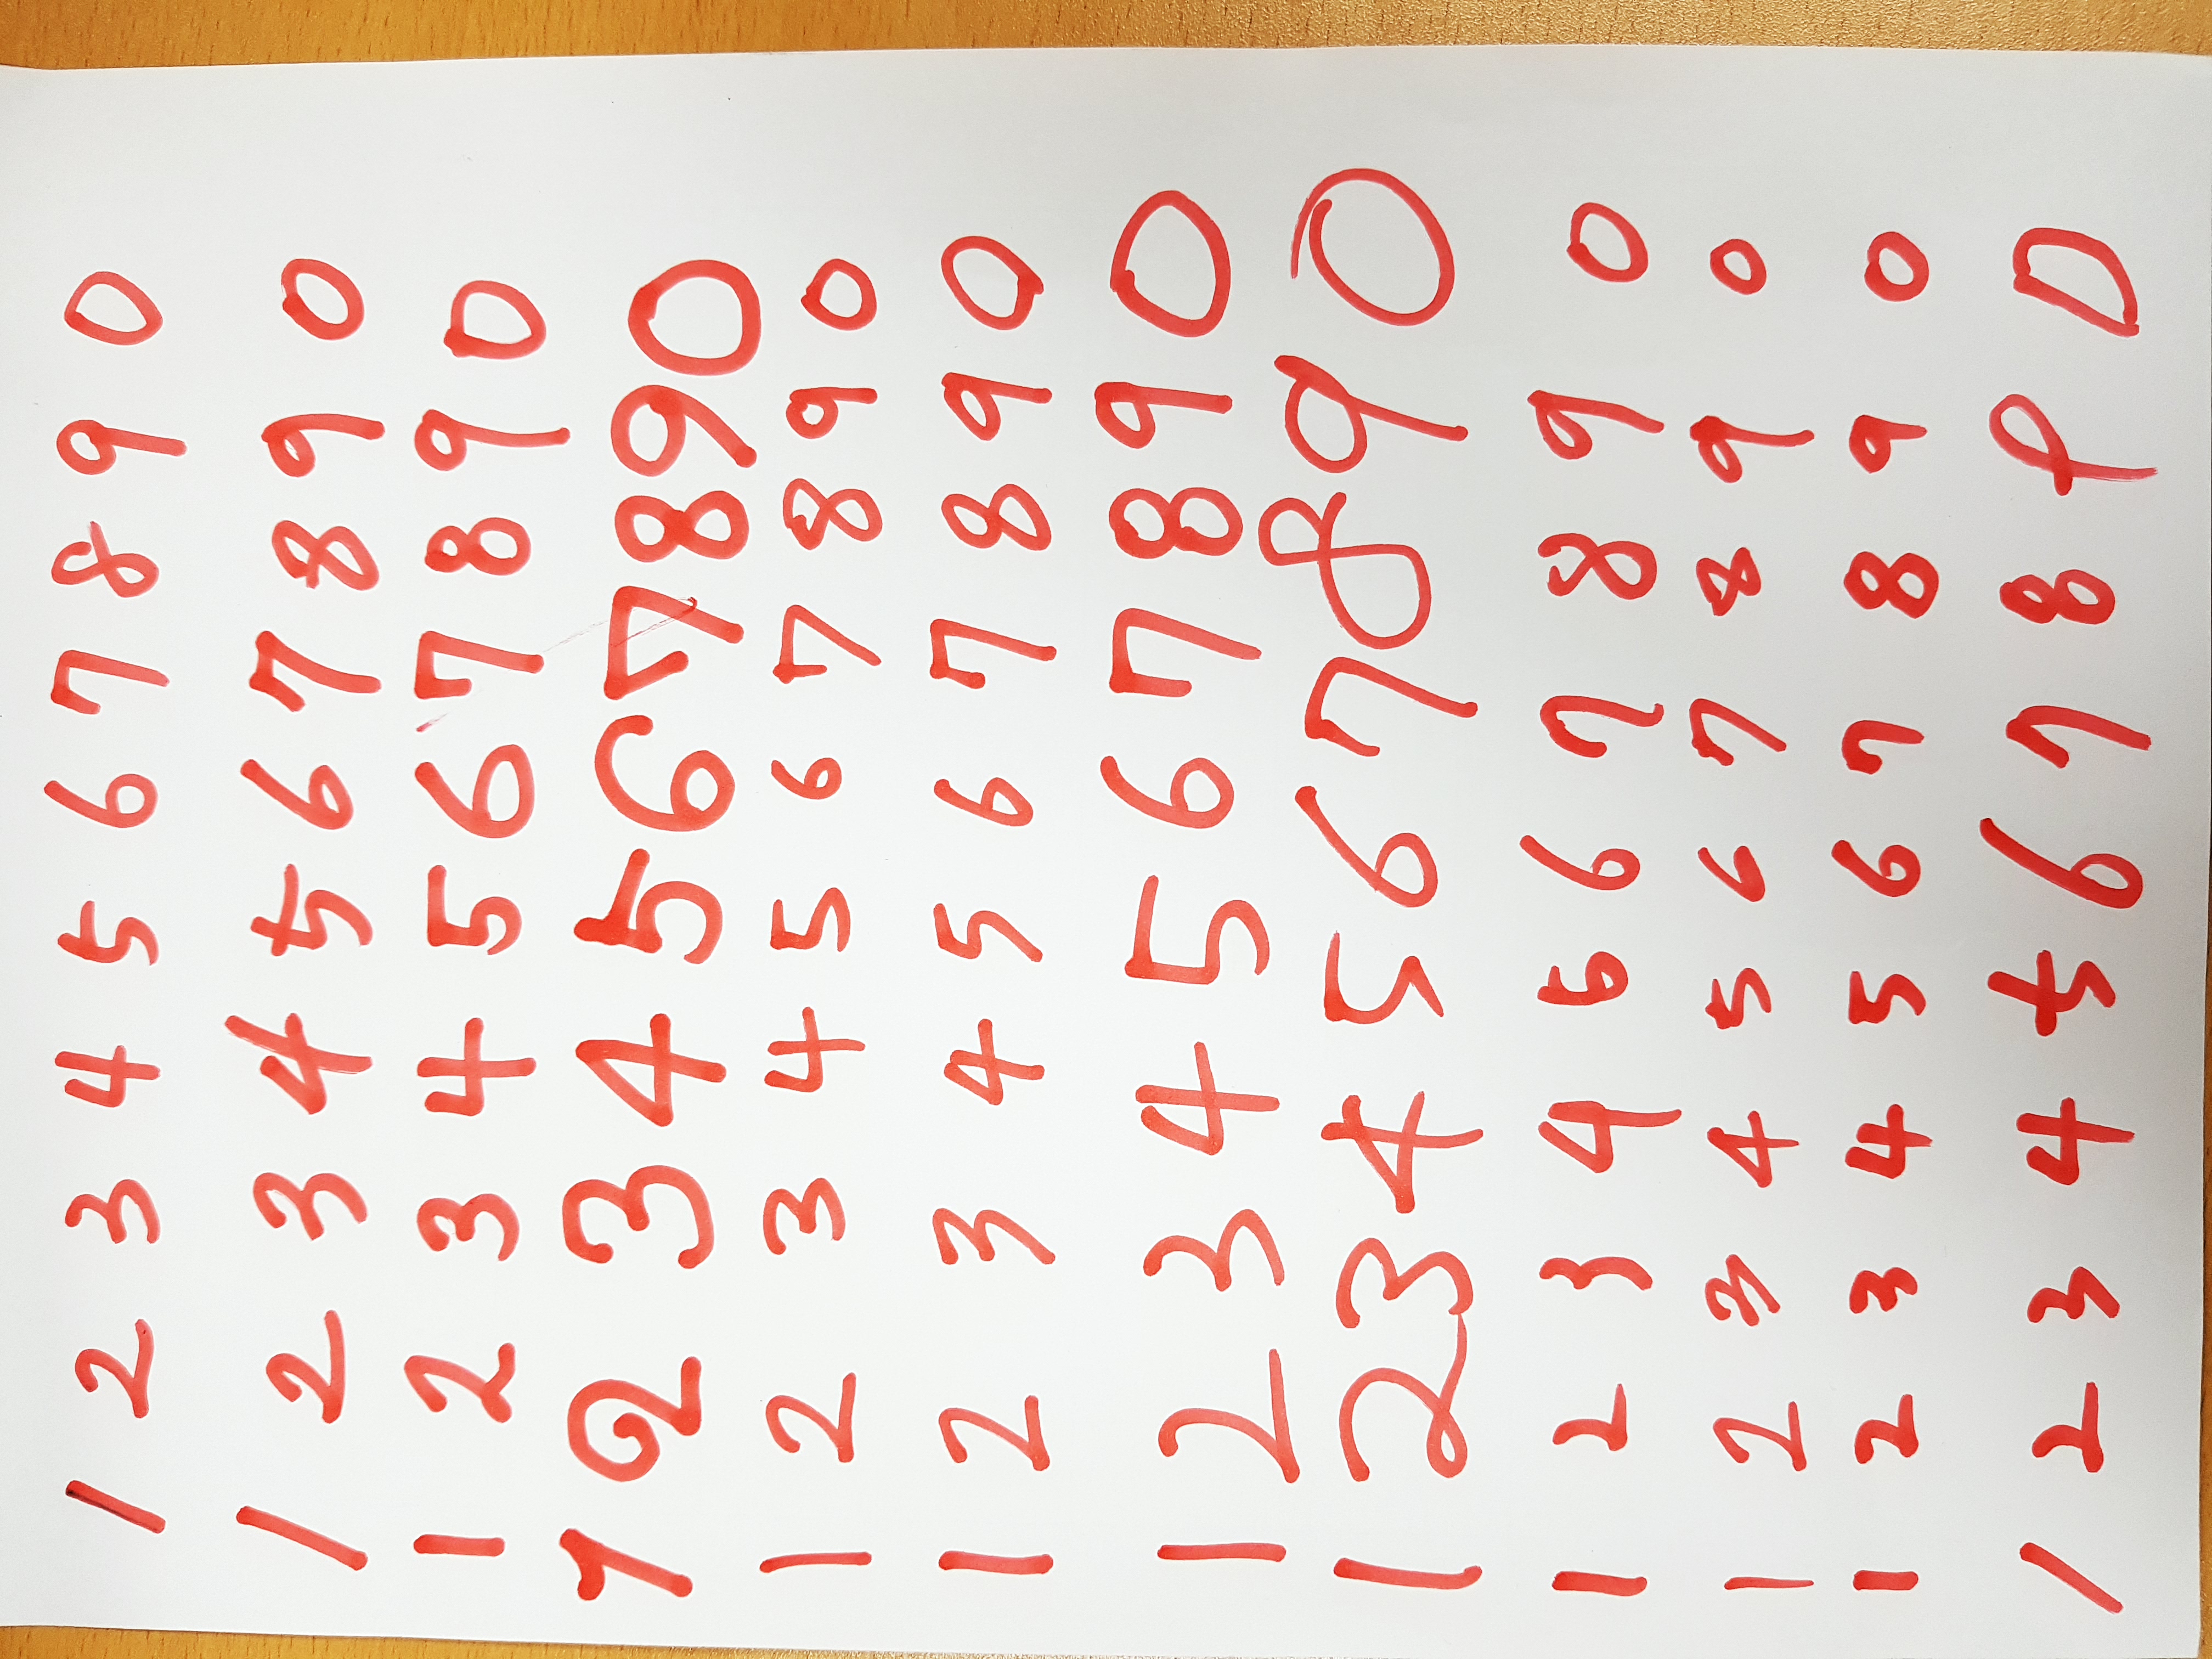 1 2 3 4 5 6 7 8 9 0
1 2 3 4 5 6 7 8 9 0
1 2 3 4 5 6 7 8 9 0
1 2 3 4 5 6 7 8 9 0
1 2 3 4 5 6 7 8 9 0
1 2 3 4 5 6 7 8 9 0
1 2 3 4 5 6 7 8 9 0
1 2 3 4 5 6 7 8 9 0
1 2 3 4 5 6 7 8 9 0
1 2 3 4 5 6 7 8 9 0
1 2 3 4 5 6 7 8 9 0
1 2 3 4 5 6 7 8 9 0